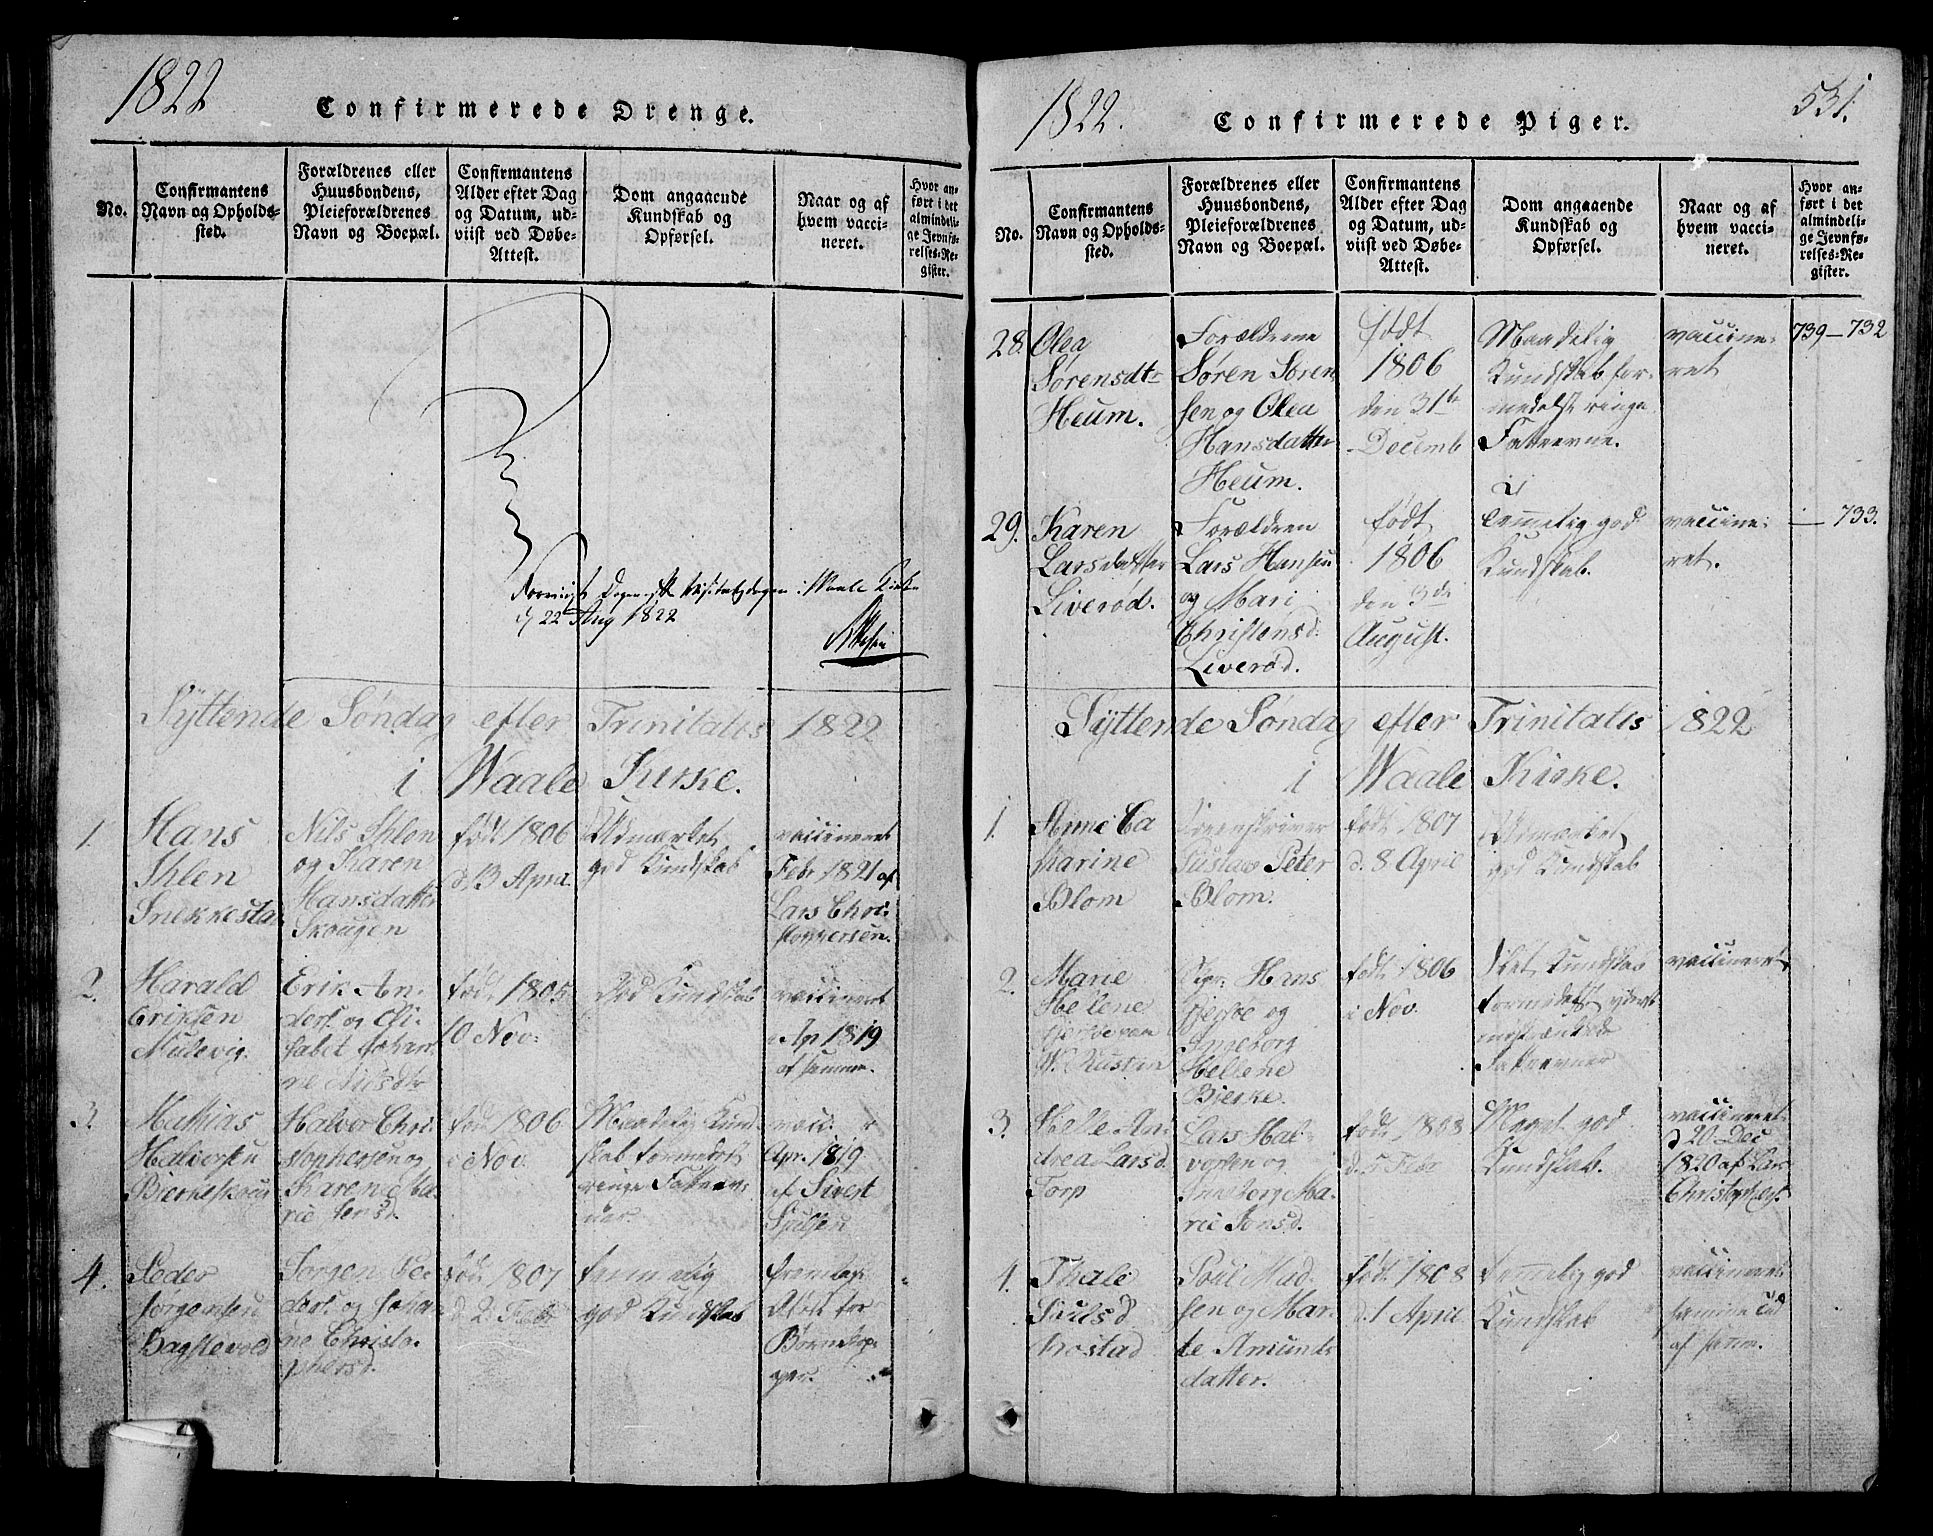 1822
Confirmerede Drenge.
No.
Confirmantens
Navn og Opholds-
sted.
Forældrenes eller
Huusbondens,
Pleieforældrenes
Navn og Boepæl.
Confirmantens
Alder efter Dag
og Datum, ud-
viist ved Døbe-
Attest.
Dom angaaende
Kundskab og
Opførsel.
Naar og af
hvem vacci-
neret.
Hvor an-
ført i det
almindeli-
ge Jevnfø-
relses-Re-
gister.
i Waale Kirke
22 Aug 1822
Syttende Søndag efter Trinitatis 1822
i Waale Kirke.
1.
Hans
Ihlen
Snekkesta
Nils Ihlen
og Karen
Hansdatter
Skougen
født 1806
d. 3 Apra.
Udmærket
god Kundskab
vaccineret
Febr 1821 af
Lars Chri-
stophersen.
2.
Harald
Eriksen
Mulevig.
Erik An-
ders. og Eli-
sabet Johan-
ne Nilsdtr
født 1805
10 Nov.
God Kundskab
vaccineret
Ap 1819
af samme.
3.
Mathias
Halversen
Bierkeskoug
Halver Chri-
stophersen og
Karen Ma-
rie Jensd.
født 1806
i Nov.
Maadelig Kund-
skab formedelst
ringe Fatteev-
ner.
vacc.
Apr. 1819
af Sivert
4.
Peder
Jørgensen
Jørgen Pe-
ders. og Johan-
ne Christo-
phersd.
født 1807
d 2 Febr
temmelig
god Kundskab
Attest for
Børnekop-
per.
1822.
Confirmerede Piger.
531.
No.
Confirmantens
Navn og Opholds-
sted.
Forældrenes eller
Huusbondens,
Pleieforældrenes
Navn og Boepæl.
Confirmantens
Alder efter Dag
og Datum, ud-
viist ved Døbe-
Attest.
Dom angaaende
Kundskab og
Opførsel.
Naar og af
hvem vacci-
neret.
Hvor an-
ført i det
almindeli-
ge Jevnfø-
relses-Re-
gister.
28.
Olea
Sørensdtr
Heum.
Forældrene
Søren Søren-
sen og Olea
Hansdatter
Heum.
født
1806
den 31te
Decemb
Maadelig
Kundskab for-
medelst ringe
Fatteevne.
vaccine-
ret
739-732
29.
Karen
Larsdatter
Liverød.
Forældren
Lars Hansen
og Mari
Christensd.
Liverød.
født
1806
den 3de
August.
temmelig god
Kundskab.
vaccine-
ret.
— 733.
Syttende Søndag efter Trinitatis 1822
i Waale Kirke.
1.
Anne Ca
tharine
Blom
Sorenskriver
Gustav Peter
Blom.
født 1807
d. 8 April
Udmærket
god Kundskab
2.
Marie
Helene
Hans
Bierke og
Ingeborg
Hellene
Bierke.
født 1806
i Nov.
Slet Kundskab
formedelst yderst
indskrænkede
Fatteevner
vaccineret
3.
Helle An-
drea Larsd.
Torp
Lars Hal-
vorsen og
Anneborg Ma-
rie Jonsd.
født 1808
d. 5 Febr
Meget god
Kundskab.
vaccineret
d 20 Dec
1820 af Lars
Christophers.
4.
Thale
Poulsd
Poul Mad-
sen og Mar-
te Amunds
datter.
født 1808
d. 1 April
temmelig god
Kundskab
vaccineret
samme Tid
af samm.